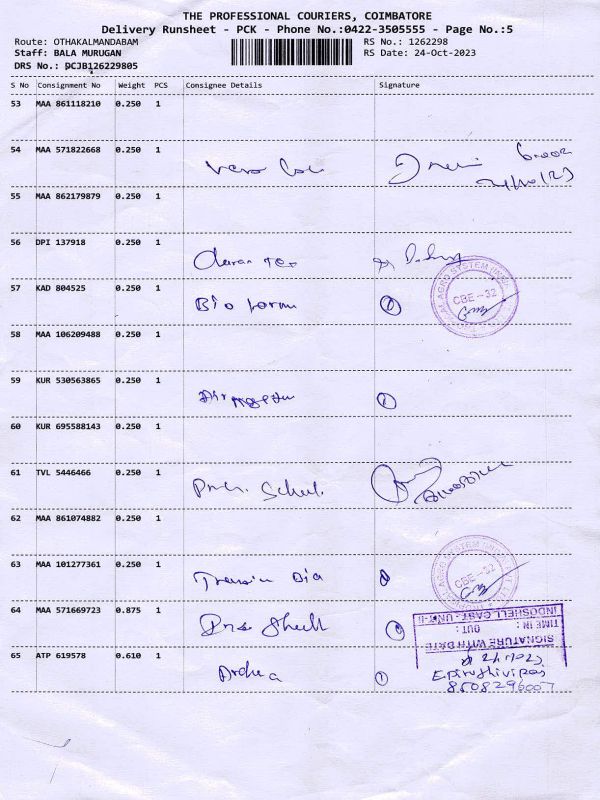 THE PROFESSIONAL COURIERS, COIMBATORE
Delivery Runsheet - PCK - Phone No.:0422-3505555 - Page No.:5
Route: OTHAKALMANDABAM RS No.: 1262298
Staff: BALA MURUGAN RS Date: 24-Oct-2023
DRS No.: DCJB126229805
S No Consignment No Weight PCS Consignee Details Signature
53 MAA 861118210 0.250 1
54 MAA 571822668 0.250 1
55 MAA 862179879 0.250 1
56 DPI 137918 0.250 1
57 KAD 804525 0.250 1 Bio
CBE-32
58 MAA 106209488 0.250 1
59 KUR 530563865 0.250 1
60 KUR 695588143 0.250 1
61 TVL 5446466 0.250 1
62 MAA 861074882 0.250 1
63 MAA 101277361 0.250 1
CBE-32
64 MAA 571669723 0.875 1
INDOSHELL CAST. UNIT-II
TIME IN : OUT :
SIGNATURE WITH DATE
65 ATP 619578 0.610 1
8508296007